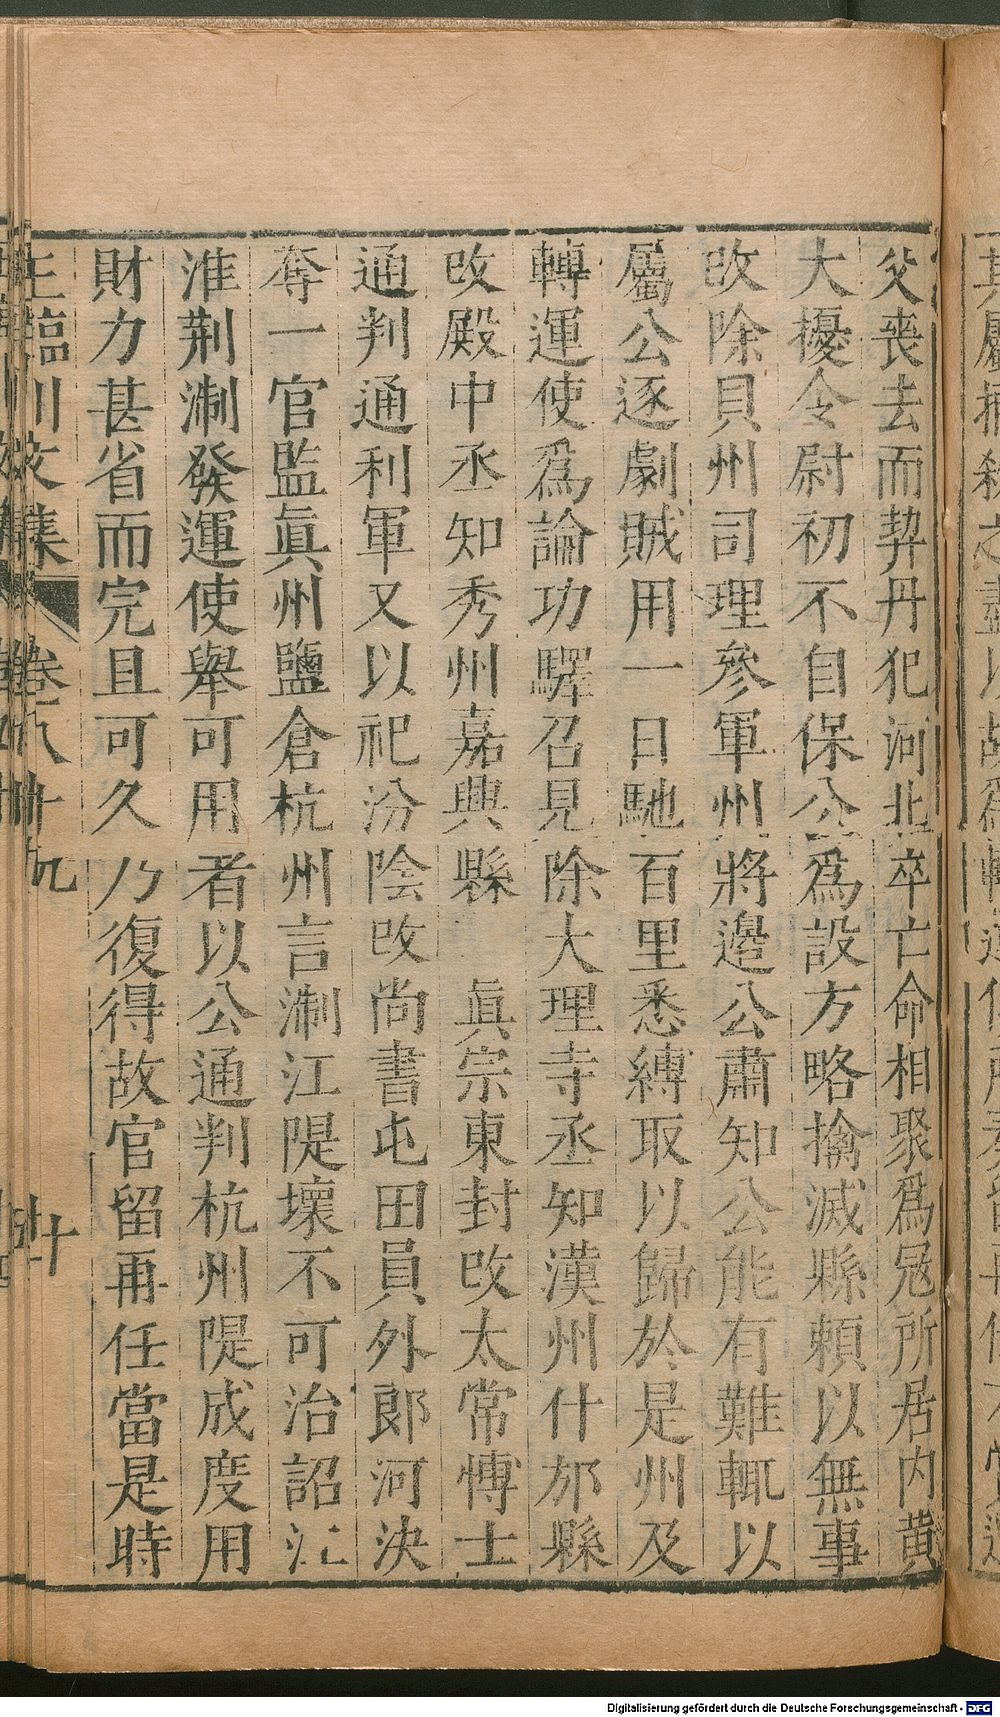 父喪去而契丹犯河北卒亡命相聚爲冦所居内黄
大擾令尉初不自保公爲設方略擒滅縣頼以無事
改除貝州司理參軍州將邊公肅知公能有難輒以
屬公逐劇賊用一日馳百里悉縛取以歸於是州及
轉運使爲論功驛召見除大理寺丞知漢州什邡縣
改殿中丞知秀州嘉興縣　眞宗東封改太常博士
通判通利軍又以祀汾陰改尚書屯田員外郎河決
奪一官監眞州鹽倉杭州言淛江隄壞不可治詔江
淮荆淛發運使舉可用者以公通判杭州隄成度用
財力甚省而完且可久乃復得故官留再任當是時
王臨川文集　卷八十九　十
Digitalisierung gefördert durch die Deutsche Forschungsgemeinschaft - DFG